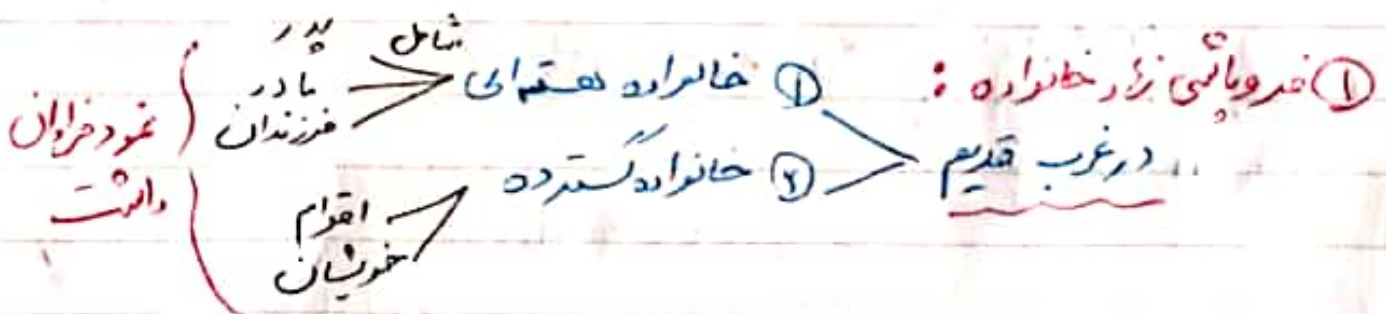 ① فروپاشی نهاد خانواده :
در غرب قدیم
① خانواده هسته‌ای
شامل
پدر
مادر
فرزندان
② خانواده گسترده
اقوام
خویشان
نمود فراوان
داشت